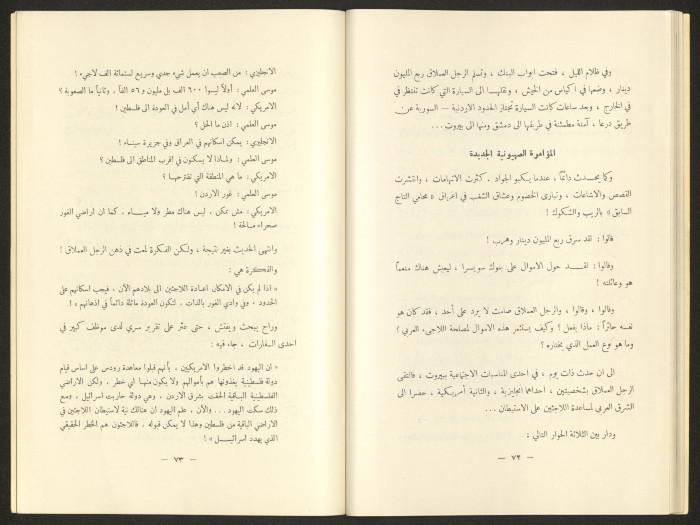 وفي ظلام الليل ، فتحت ابواب البنك ، وتسلم الرجل العملاق ربع المليون
دينار ، وضعها في اكياس من الخيش ، ونقلهـا الى السيارة التي كانت تنتظر في
في الخارج ، وبعد ساعات كانت السيارة تجتاز الحدود الاردنية – السورية عن
طريق درعا ، آمنة مطمئنة في طريقها الى دمشق ومنها الى بيروت...
المؤامرة الصهيونية الجديدة
وكما يحـدث دائماً ، عندما يـكبو الجواد . كثرت الاتهامات ، وانتشرت
القصص والاشاعات ، وتبارى الخصوم وعشاق الشغب في اغراق « محامي التاج
السابق » بالريب والشكوك !
قالوا : لقد سرق ربع المليون دينار وهرب !
وقالوا : لقـد حول الاموال على بنوك سويسرا ، ليعيش هناك منعماً
هو وعائلته !
وقالوا ، وقالوا ، والرجل العملاق صامت لا يرد على أحد ، فقد كان هو
نفسه حائراً : ماذا يفعل ؟ وكيف يستثمر هذه الاموال لمصلحة اللاجيء العربي ؟
وما هو نوع العمل الذي يختاره ؟
الى ان حدث ذات يوم ، في احدى المناسبات الاجتماعية ببيروت ، فالتقى
الرجل العملاق بشخصيتين ، احداهما انجليزية ، والثانية أمريـكية ، حضرا الى
الشرق العربي لمساعدة اللاجئين على الاستيطان ...
ودار بين الثلاثة الحوار التالي :
– ٧٢ –
الانجليزي : من الصعب ان يعمل شيء جدي وسريع لستمائة الف لاجيء !
موسى العلمي : أولاً ليسوا ٦٠٠ الف بل مليون و ٥٦ الفاً ، وثانياً ما الصعوبة ؟
الامريكي : لانه ليس هناك أي أمل في العودة الى فلسطين !
موسى العلمي : اذن ما الحل ؟
الانجليزي : يمكن اسكانهم في العراق وفي جزيرة سينـاء !
موسى العلمي : ولماذا لا يسكنون في اقرب المناطق الى فلسطين ؟
الامريكي : ما هي المنطقة التي تقترحهـا ؟
موسى العلمي : غور الاردن !
الامريكي : مش ممكن ، ليس هناك مطر ولا ميـاه ، كما ان اراضي الغور
صحراء مـالحة !
وانتهى الحديث بغير نتيجة ، ولـكن الفكرة لمعت في ذهن الرجل العملاق !
والفـكرة هي :
« اذا لم يكن في الامكان اعـادة اللاجئين الى بلادهم الآن ، فيجب اسكانهم على
الحدود ، وفي وادي الغور بالذات ، لتكون العودة ماثلة دائماً في اذهانهم » !
وراح يبحث ويفتش ، حتى عثر على تقرير سري لدى موظف كبير في
احدى السفارات ، جاء فيه :
« ان اليهود قد اخطروا الامريكيين ، بأنهم قبلوا معاهدة رودس على اساس قيام
دولة فلسطينية يغذونها هم بأموالهم ولا يكون منهـا اي خطر ، ولكن الاراضي
الفلسطينية البـاقية الحقت بشرق الاردن ، وهي دولة حاربت اسرائيل ، ومع
ذلك سكت اليهود ... والآن ، علم اليهود ان هنالك نية لاستيطان اللاجئين في
الاراضي الباقية من فلسطين وهذا لا يمكن قبوله . فاللاجئون هم الخطر الحقيقي
الذي يهدد اسرائيـــل » !
– ٧٣ –